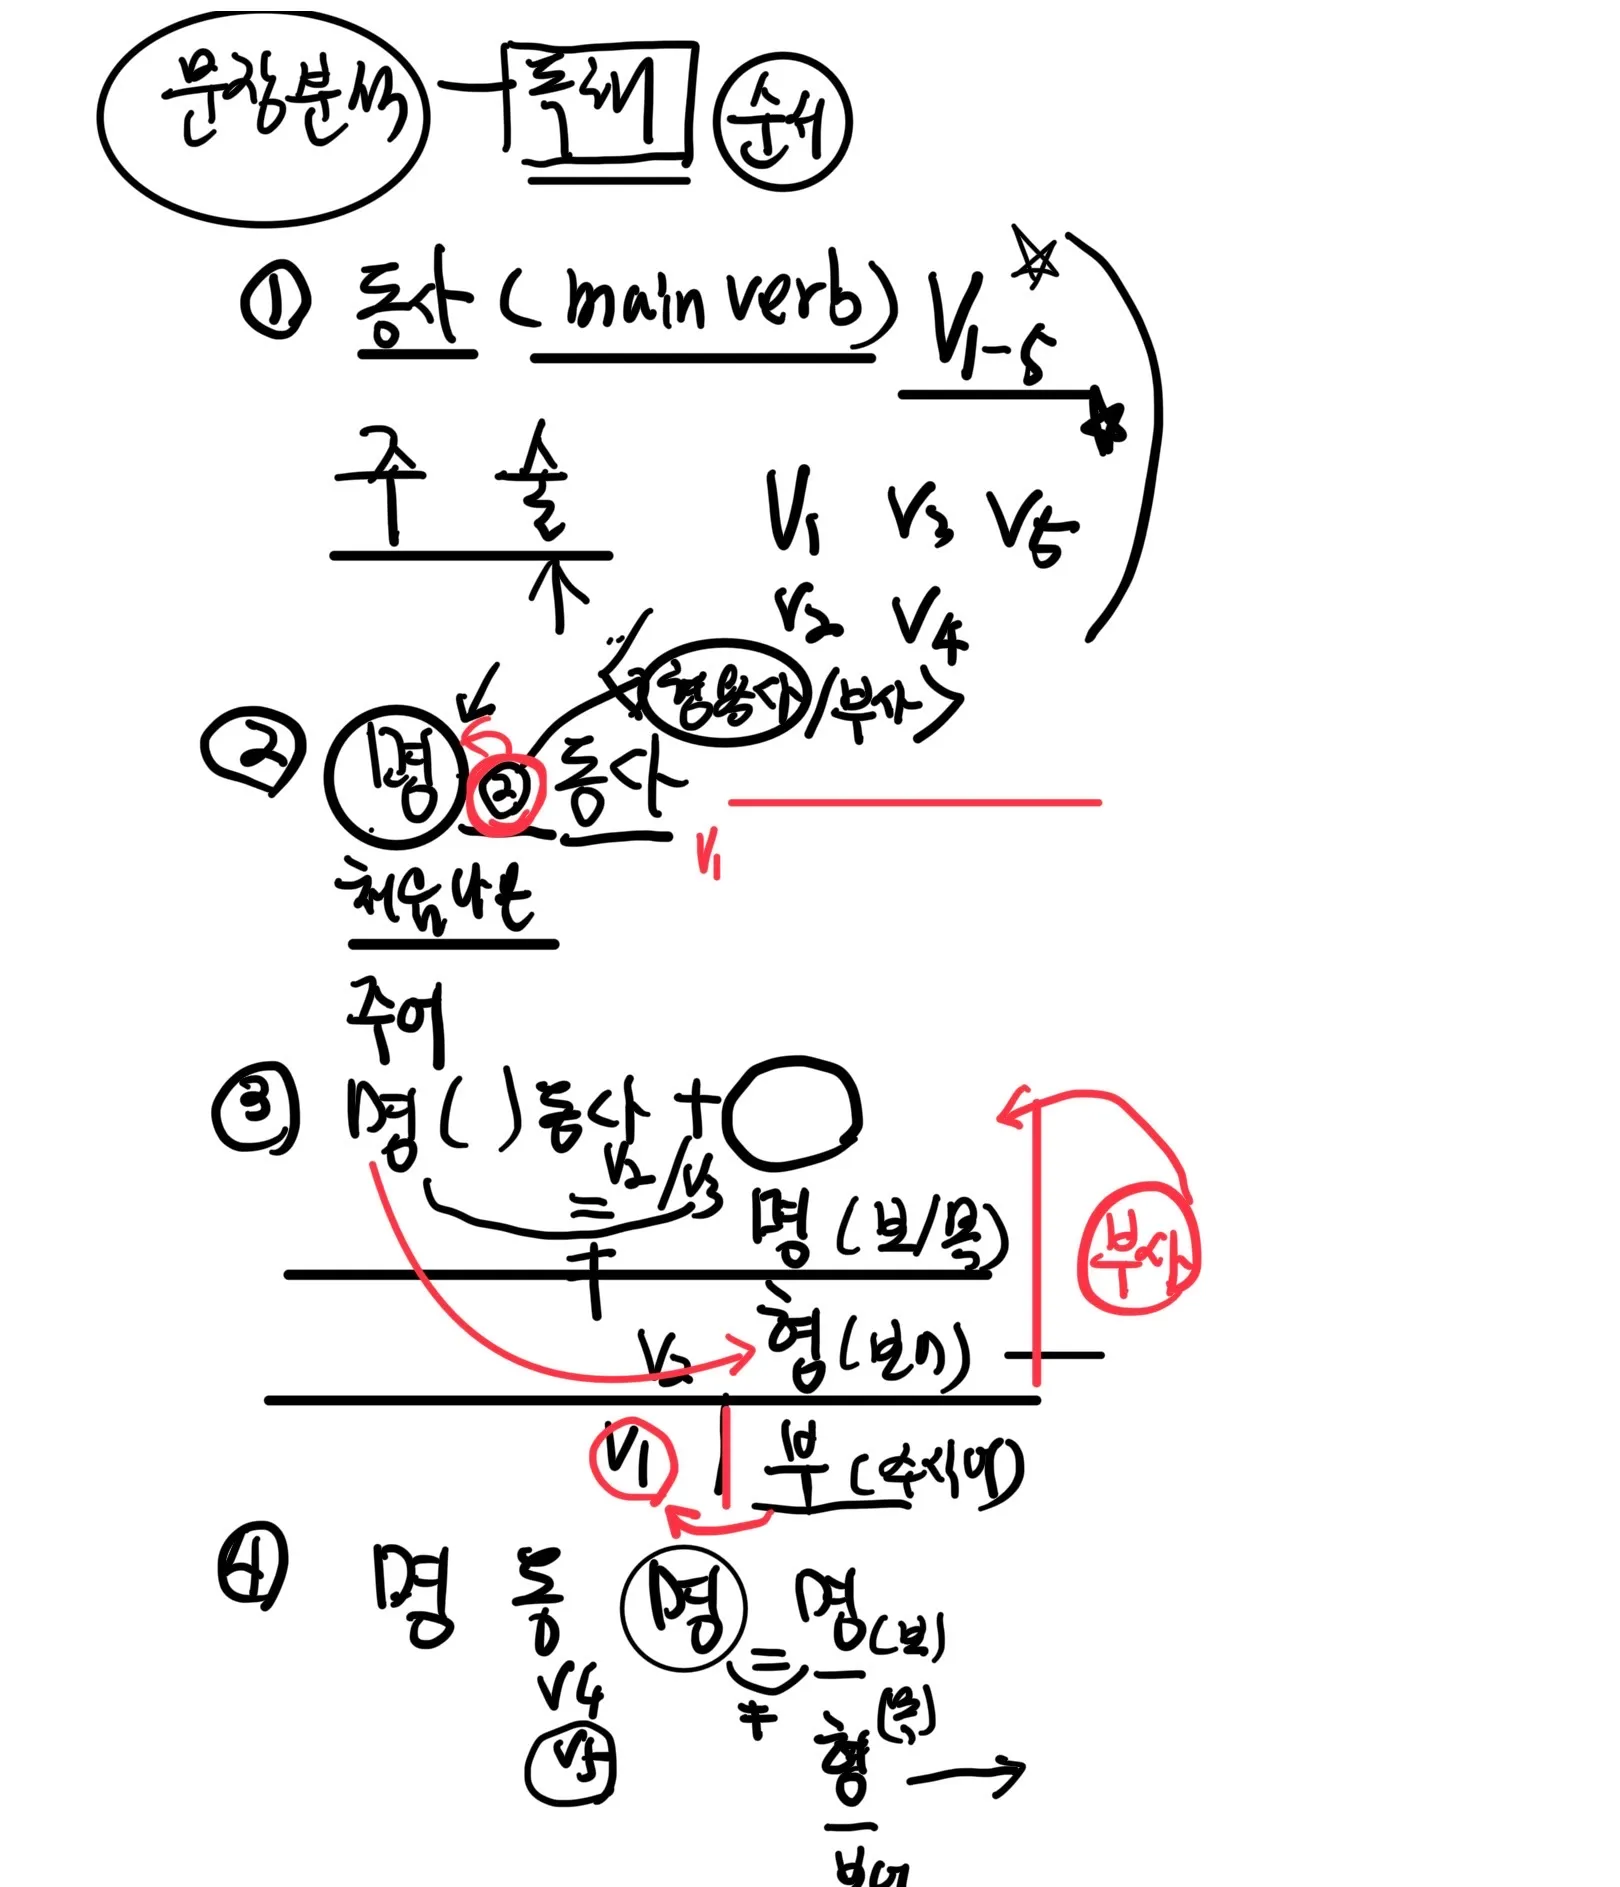 문장분석 순서
① 동사 (main verb) V1-5
주 술 V1 V3 V5
V2 V4
형용사/부사
② 명 ② 동사
V1
처음 나온
주어
③ 명 ( ) 동사 +
V2/V3
= 명 (보/목)
부사
≠
V2 형 (보어)
V1 부 (수식어)
④ 명 동 명 명 (보)
=
V4 (목)
≠
V5 형
보어